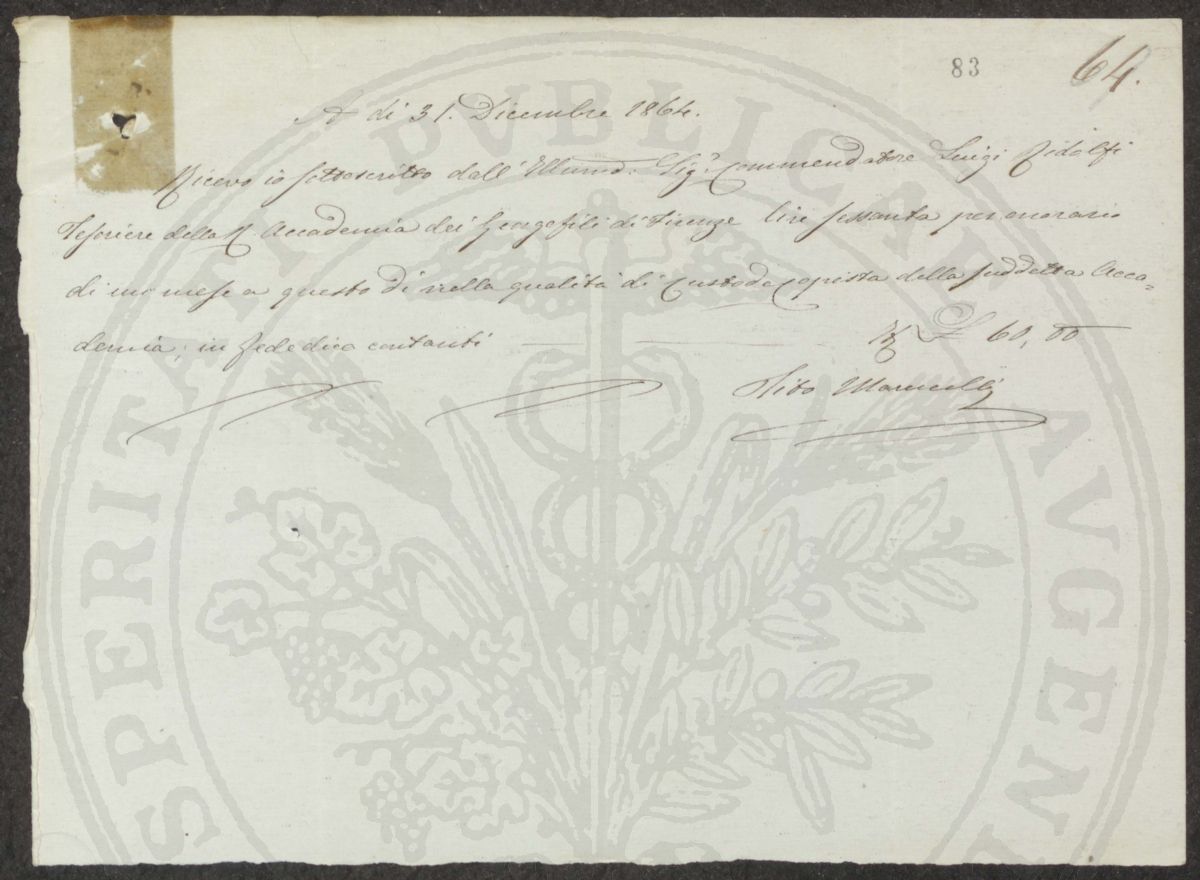 83
64.
A dì 31. Dicembre 1864.
Ricevo io sottoscritto dall' Illumo. Sigr. Commendatore Luigi Ridolfi
Tesoriere della R. Accademia dei Georgofili di Firenze lire sessanta per onorario
di un mese a questo dì nella qualità di Custode Copista della suddetta Acca=
demia; in fede dico contanti L 60,00
Tito Marucelli
PROSPERITATI PVBLICAE AVGENDAE